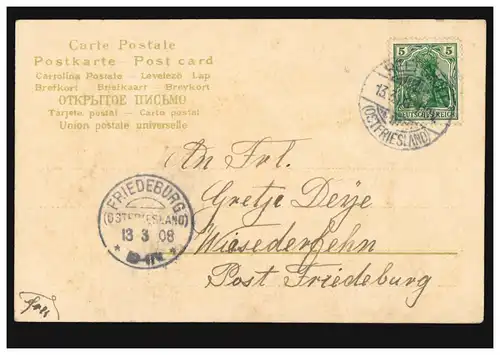 Carte Postale
Postkarte - Post card
Cartolina Postale - Levelező Lap
Brefkort - Briefkaart - Brevkort
ОТКРЫТОЕ ПИСЬМО
Tarjeta postal - Carte postal
Union postale universelle
5 5
DEUTSCHES REICH
13.3
(OSTFRIESLAND)
An Frl.
Gretje Deye
Wiesederfehn
Post Friedeburg
FRIEDEBURG
(OSTFRIESLAND)
13 3 08